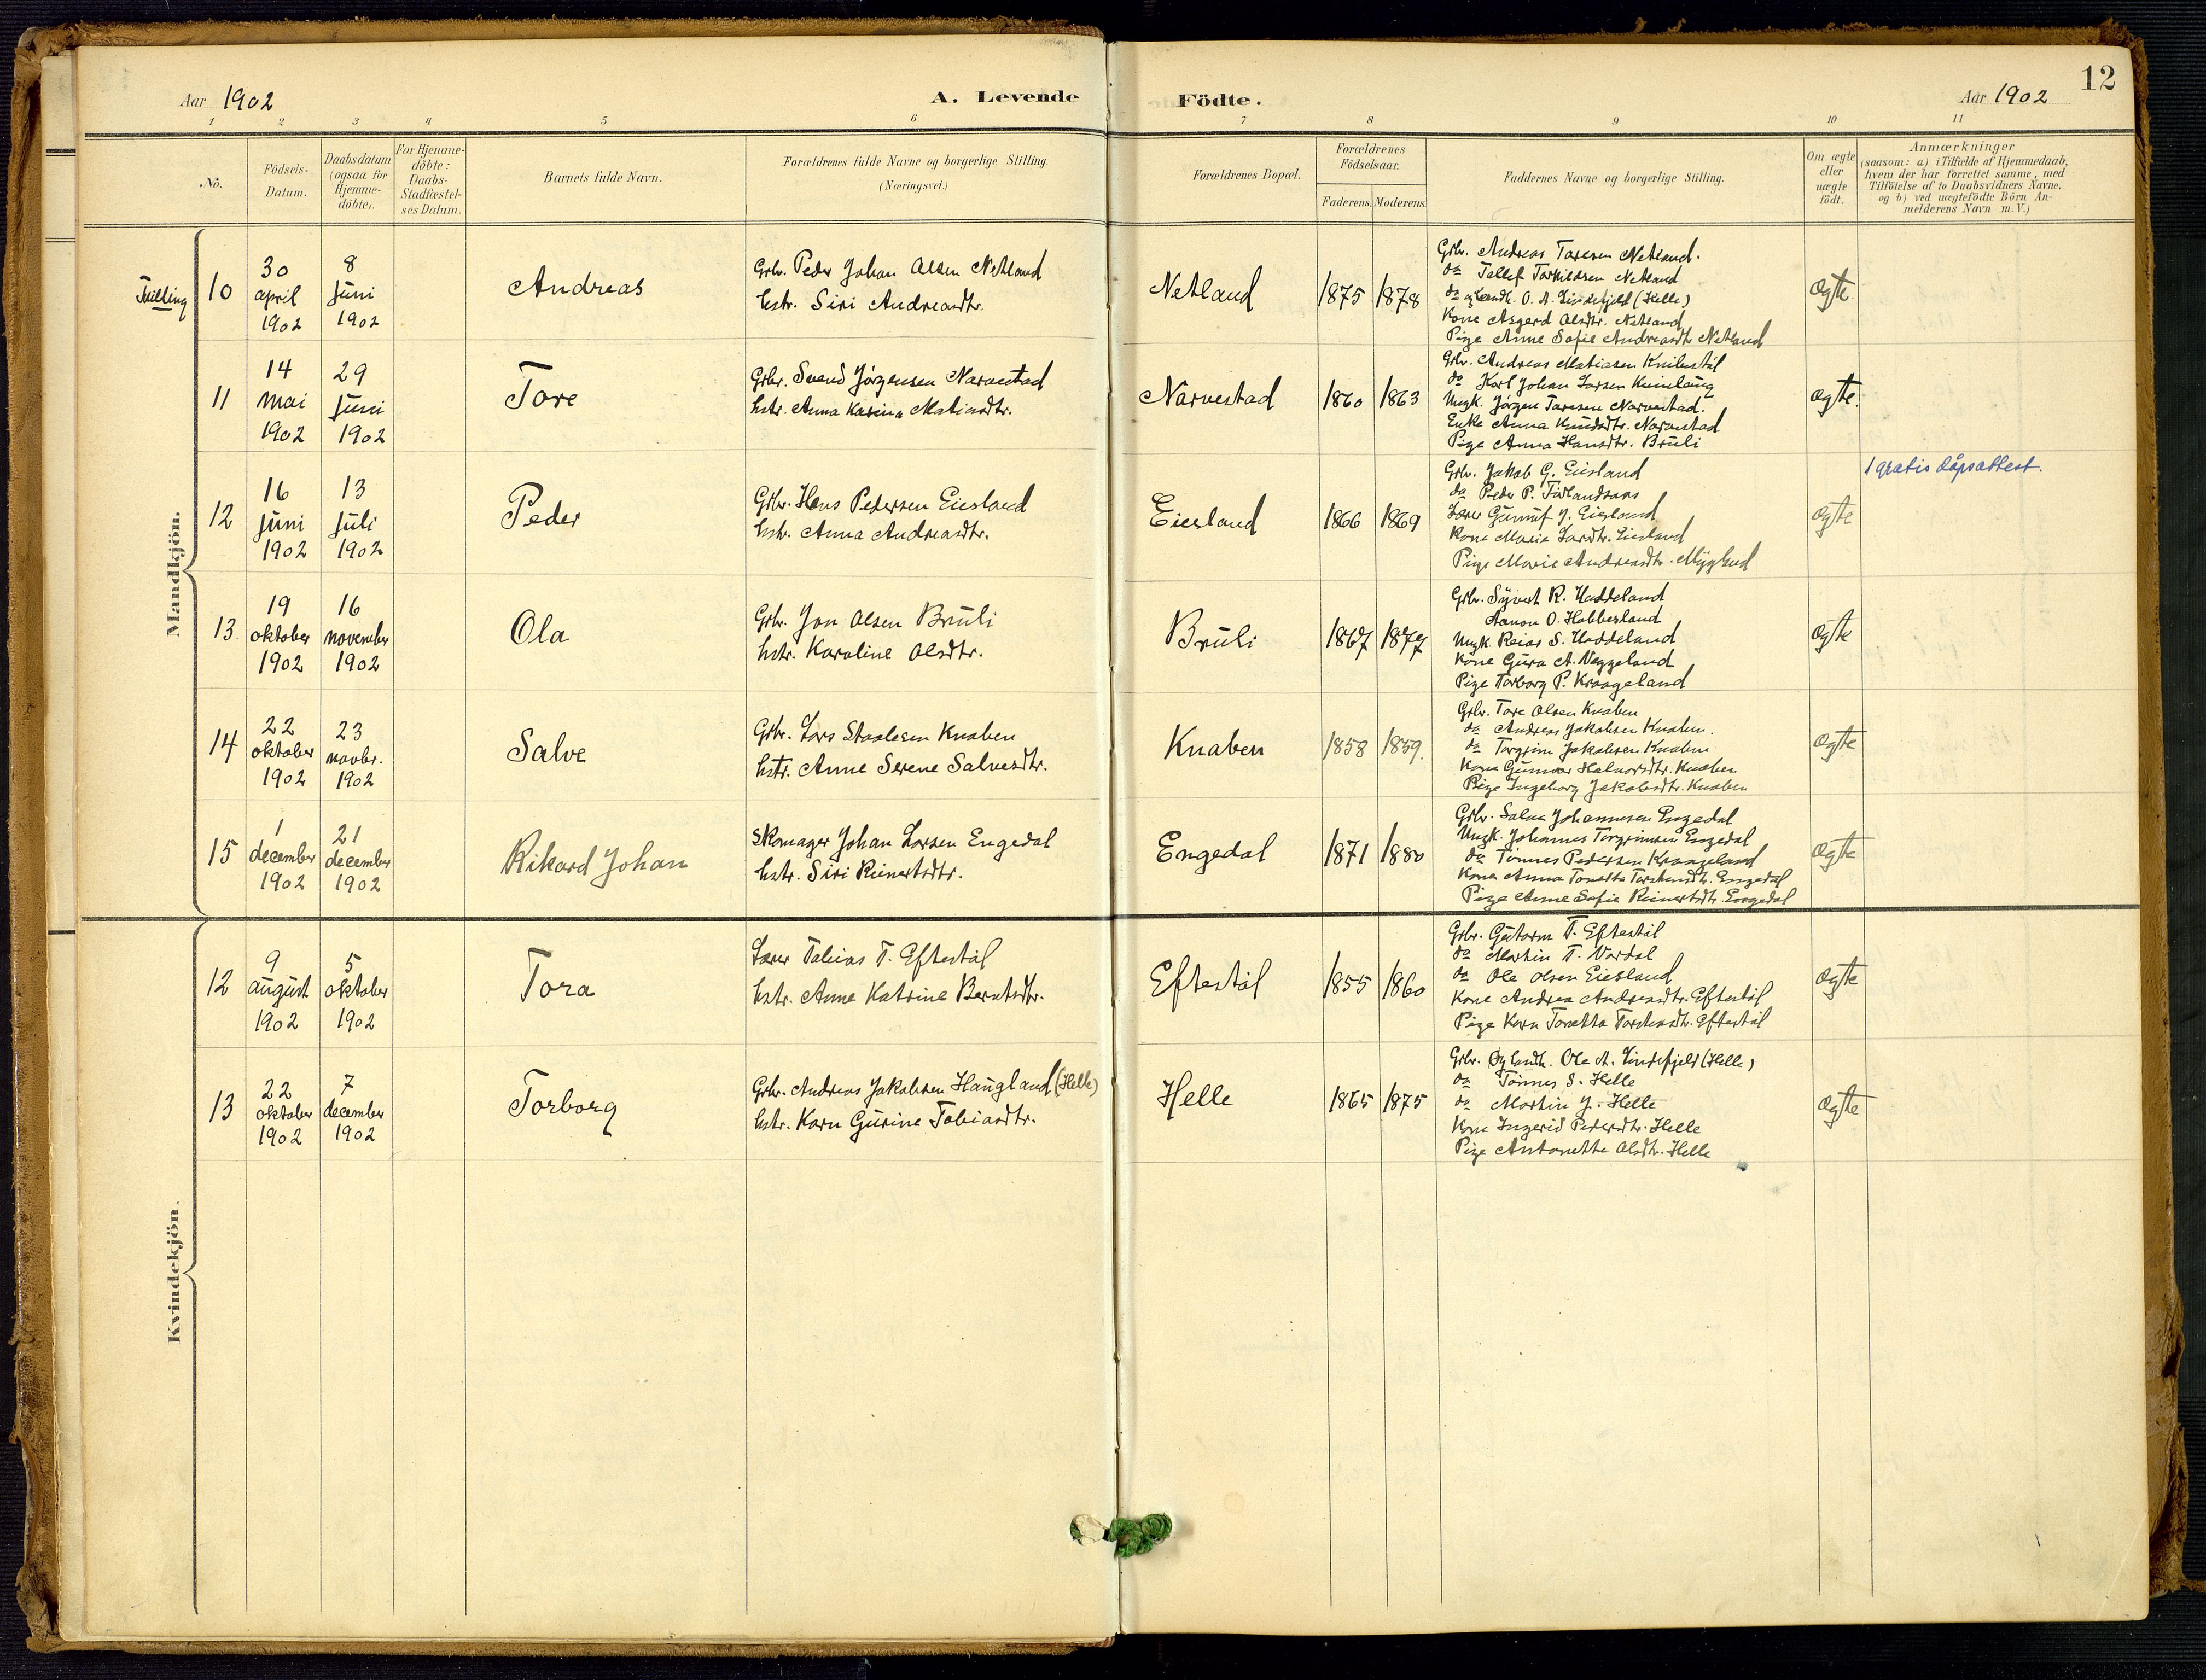 Aar 1902
A. Levende
Födte.
Aar 1902
12
1 2 3 4 5 6 7 8 9 10 11
No.
Födsels-
Datum.
Daabsdatum
(ogsaa for
Hjemme-
döbte).
For Hjemme-
döbte:
Daabs-
Stadfæstel-
ses Datum.
Barnets fulde Navn.
Forældrenes fulde Navne og borgerlige Stilling.
(Næringsvei.)
Forældrenes Bopæl.
Forældrenes
Födselsaar.
Faderens. Moderens.
Faddernes Navne og borgerlige Stilling.
Om ægte
eller
uægte
födt.
Anmærkninger
(saasom: a) i Tilfælde af Hjemmedaab,
hvem der har forrettet samme, med
Tilföielse af to Daabsvidners Navne,
og b) ved uægtefödte Börn An-
melderens Navn m.V.)
Mandkjön.
Tvilling
10
30
april
1902
8
juni
1902
Andreas
Grbr. Peder Johan Olsen Netland
hstr. Siri Andreasdtr.
Netland
1875 1878
Grbr. Andreas Taresen Netland.
do Tallef Torkildsen Netland
O. A. Lindefjeld (Helle)
Kone Asgerd Olsdtr. Netland
Pige Anne Sofie Andreasdtr Netland
ægte
11
14
mai
1902
29
juni
1902
Tore
Grbr. Svend Jørgensen Narvestad
hstr. Anna Karina Matiasdtr.
Narvestad
1860 1863
Grbr. Andreas Matiasen
do Karl Johan Larsen Kvinlaug
Ungk. Jørgen Taresen Narvestad.
Enke Anna Knudsdtr. Narvestad
Pige Anna Hansdtr. Bruli
ægte.
12
16
juni
1902
13
juli
1902
Peder
Grbr. Hans Pedersen Eiesland
hstr. Anna Andreasdtr.
Eiesland
1866 1869
Grbr. Jakob G. Eiesland
do Peder P.
Lærer Gunuf J. Eiesland
Kone Maria Larsdtr. Eiesland
Pige Marie Andreasdtr. Mygland
ægte
1 gratis dåpsattest.
13
19
oktober
1902
16
november
1902
Ola
Grbr. Jon Olsen Bruli
hstr. Karoline Olsdtr.
Bruli
1867 1877
Grbr. Syvert R. Haddeland
Aanon O. Hobbesland
Ungk. Reiar S. Haddeland
Kone Gura A. Veggeland
Pige Torborg P. Kraageland
ægte
14
22
oktober
1902
23
novbr.
1902
Salve
Grbr. Lars Staalesen Knaben
hstr. Anne Serene Salvesdtr.
Knaben
1858 1859.
Grbr. Tore Olsen Knaben
do Andreas Jakobsen Knaben.
do Torgrim Jakobsen Knaben
Kone Gunvor Halvorsdtr. Knaben
Pige Ingeborg Jakobsdtr. Knaben
ægte
15
1
december
1902
21
december
1902
Rikard Johan
Skomager Johan Larsen Engedal
hstr. Siri Reinertsdtr.
Engedal
1871 1880
Grbr. Salve Johannesen Engedal
Ungk. Johannes Torgrimsen Engedal
do Tønnes Pedersen Kraageland
Kone Anna Tonette Engedal
Pige Anne Sofie Reinertsdtr Engedal
ægte
Kvindekjön.
12
9
august
1902
5
oktober
1902
Tora
Lærer Tobias T. Eftestøl
hstr. Anne Katrine Berntsdtr.
Eftestøl
1855 1860
Grbr. Gutorm T. Eftestøl
do Martin T. Vordal
do Ole Olsen Eiesland
Kone Andrea Andreasdtr. Eftestøl
Pige Karn Tonette Eftestøl
ægte
13
22
oktober
1902
7
december
1902
Torborg
Grbr. Andreas Jakobsen Haugland (Helle)
hstr. Karn Gurine Tobiasdtr.
Helle
1865 1875
Grbr. Og landh. Ole A. Lindefjeld (Helle)
do Tønnes S. Helle
do Martin J. Helle
Kone Ingerid Pedersdtr. Helle
Pige Antonette Olsdtr. Helle
ægte